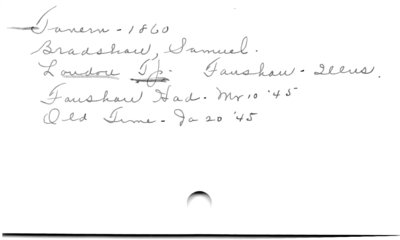 Tavern - 1860
Bradshaw, Samuel.
Loudon Tp. Fanshaw - Illus.
Fanshaw Had. Mr 10 '45
Old Time - Ja 20 '45